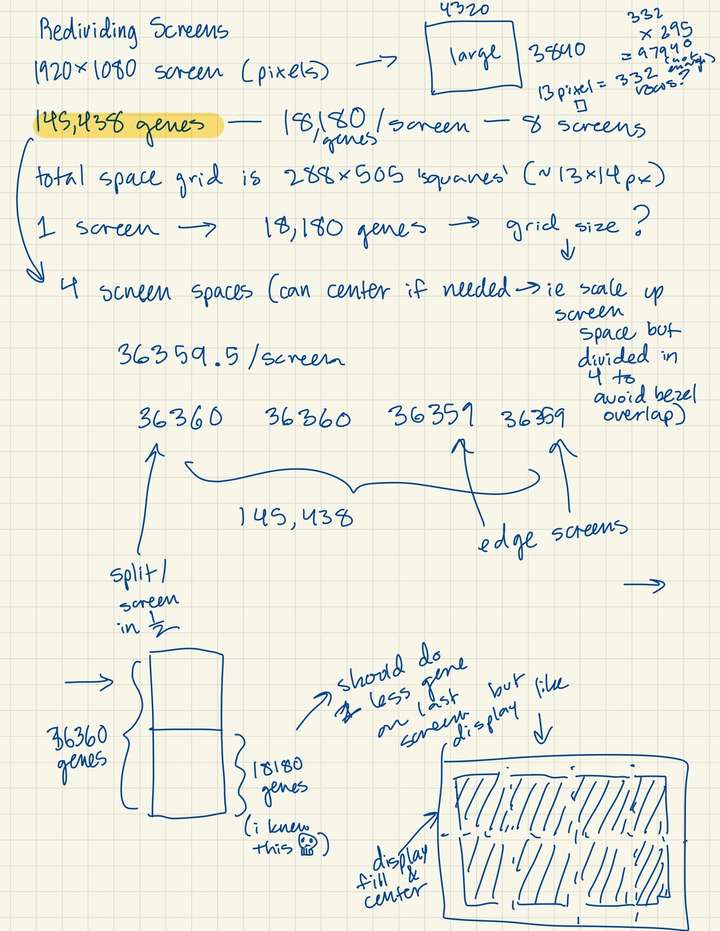 Redividing Screens
4320
1920×1080 screen (pixels) → large 3840
332
× 295
= 97940
(not enough)
13 pixel = 332 rows?
145,438 genes — 18,180 genes/screen — 8 screens
total space grid is 288×505 'squares' (~13×14px)
1 screen → 18,180 genes → grid size?
4 screen spaces (can center if needed → ie scale up
screen
space but
divided in
4 to
avoid bezel
overlap)
36359.5/screen
36360 36360 36359 36359
145,438
edge screens
→
split/
screen
in 1/2
→
36360
genes
18180
genes
(i knew
this)
should do
less gene
on last
screen but like
display
display
fill &
center